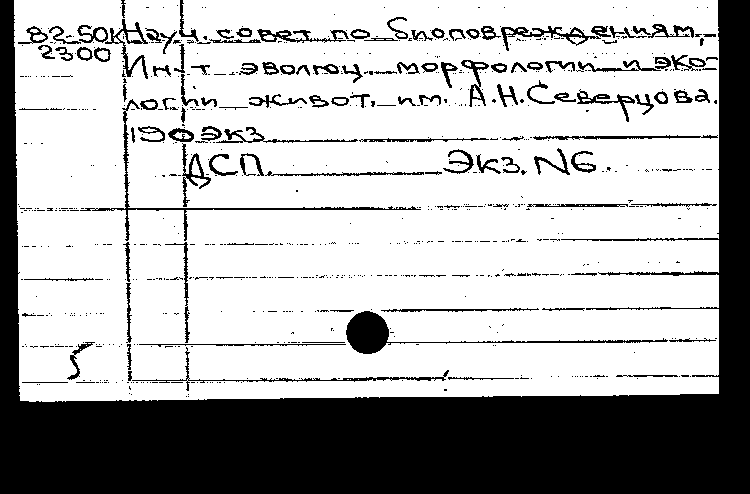 82-50К Науч. совет по биоповреждениям,
2300 Ин-т эволюц. морфологии и эко-
логии живот. им. А.Н.Северцова.
190 экз
ДСП. Экз. N6.
5